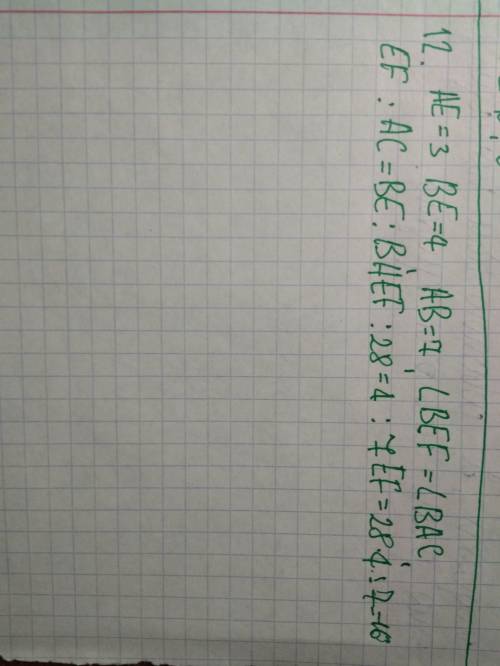 12. AE=3 BE=4, AB=7, ∠BEF=∠BAC,
EF : AC=BE:BAEF:28=4:7EF=28 4:7=16